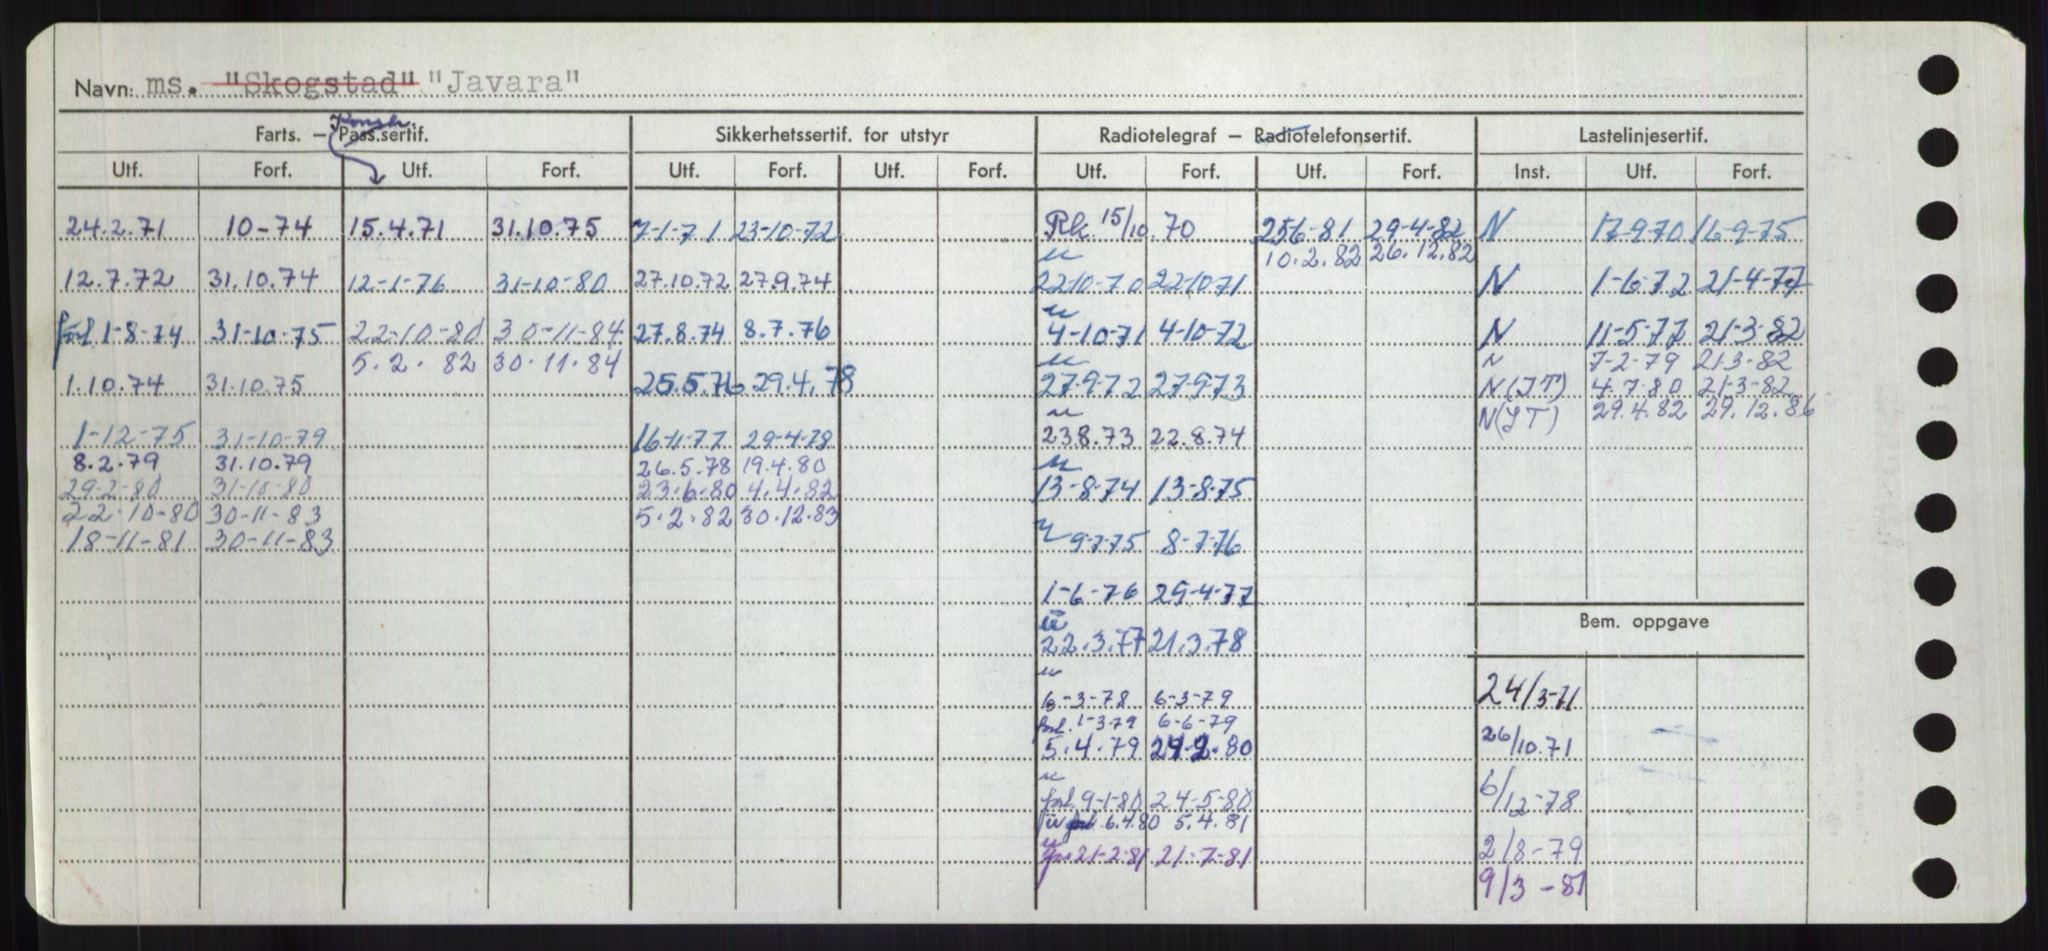 Navn: ms. "Skogstad" "Javara"
Farts. – Pass.sertif. Konstr. Sikkerhetssertif. for utstyr Radiotelegraf – Radiotelefonsertif. Lastelinjesertif.
Utf. Forf. Utf. Forf. Utf. Forf. Utf. Forf. Utf. Forf. Utf. Forf. Inst. Utf. Forf.
24.2.71 10-74 15.4.71 31.10.75 7-1-71 23-10-72 Rk. 15/10.70 25.6-81 29-4-82 N 17-9.70 16-9-75
10.2.82 26.12.82
12.7.72 31.10.74 12-1-76 31-10-80 27.10.72 27.9.74 22.10-70 22.10.71 N 1-6-72 21-4-77
forl. 1-8-74 31-10-75 22-10-80 30-11-84 27.8.74 8.7.76 4-10-71 4-10-72 N 11-5-77 21-3-82
5.2.82 30.11.84 N 7-2-79 21.3.82
1.10.74 31.10.75 25.5.76 29.4.78 27-9-72 27-9-73 N(IT) 4.7.80 21-3-82
N(IT) 29.4.82 29.12.86
1-12-75 31-10-79 16-11-77 29-4-78 23.8.73 22.8.74
8.2.79 31.10.79 26.5.78 19.4.80
29-2-80 31-10-80 23.6.80 4.4.82 13-8-74 13-8-75
22-10-80 30-11-83 5.2.82 30.12.83
18-11-81 30-11-83 9-7-75 8-7-76
1-6-76 29-4-77
Bem. oppgave
22.3.77 21.3.78
6-3-78 6-3-79 24/3-71
forl. 1-3-79 6-6-79
5.4.79 29.2.80 26/10.71
forl. 9-1-80 24-5-80 6/12-78
6.4.80 5.4.81
21-2-81 21-7-81 2/8-79
9/3-81